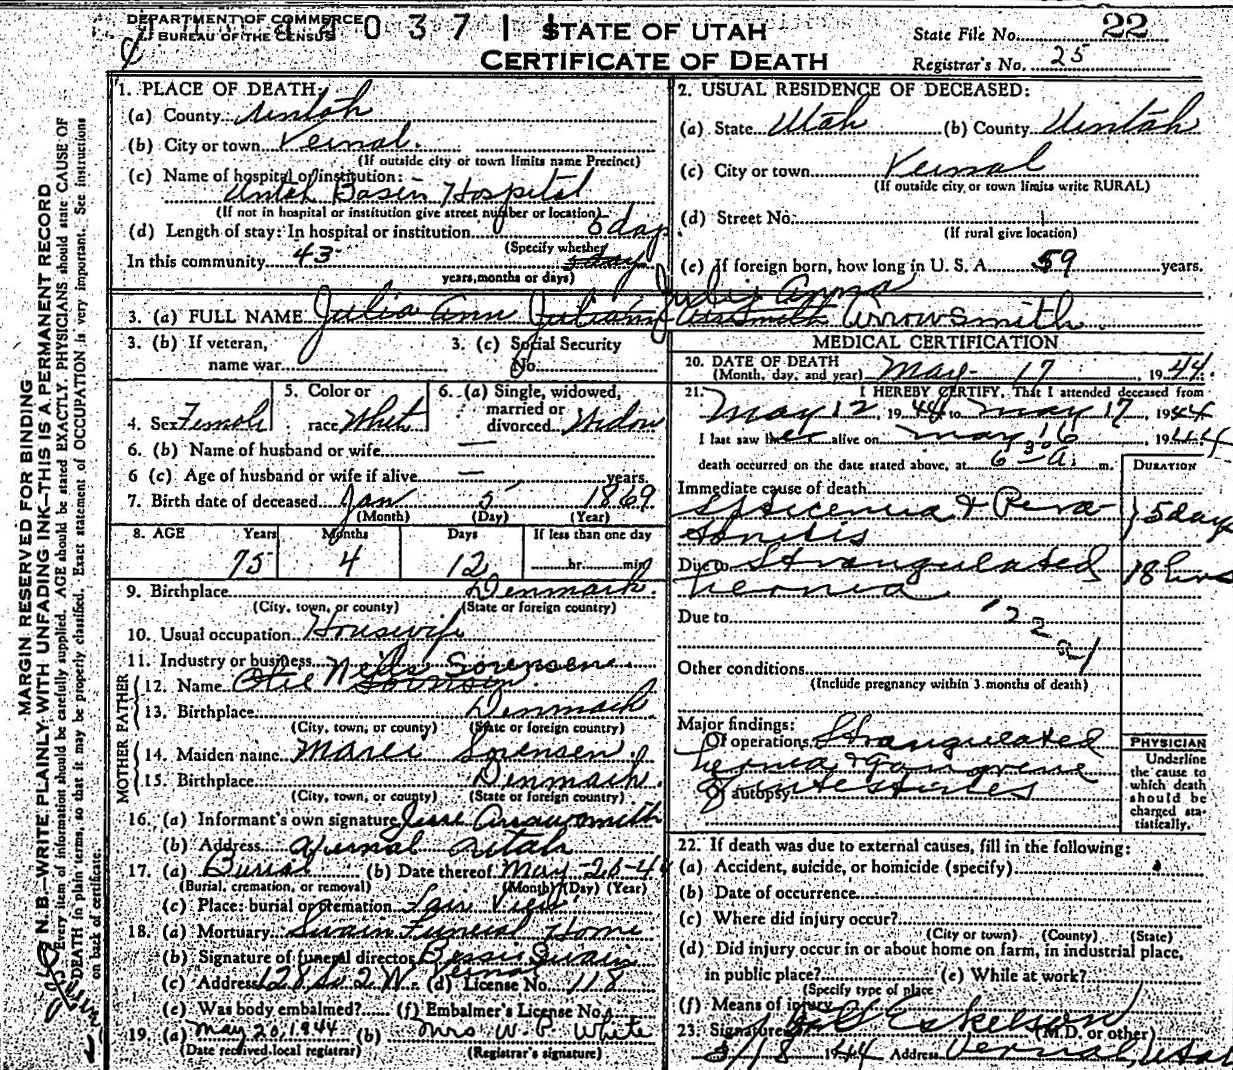 DEPARTMENT OF COMMERCE
BUREAU OF THE CENSUS
0 3 7 1
STATE OF UTAH
CERTIFICATE OF DEATH
State File No. 22
Registrar's No. 25
MARGIN RESERVED FOR BINDING
N. B.—WRITE PLAINLY, WITH UNFADING INK—THIS IS A PERMANENT RECORD
Every item of information should be carefully supplied. AGE should be stated EXACTLY. PHYSICIANS should state CAUSE OF
DEATH in plain terms, so that it may be properly classified. Exact statement of OCCUPATION is very important. See instructions
on back of certificate.
1. PLACE OF DEATH:
(a) County Uintah
(b) City or town Vernal.
(If outside city or town limits name Precinct)
(c) Name of hospital or institution:
Uintah Basin Hospital
(If not in hospital or institution give street number or location)
(d) Length of stay: In hospital or institution 5 days
(Specify whether
In this community 43
years, months or days)
2. USUAL RESIDENCE OF DECEASED:
(a) State Utah (b) County Uintah
(c) City or town Vernal
(If outside city or town limits write RURAL)
(d) Street No.
(If rural give location)
(e) If foreign born, how long in U. S. A. 59 years.
3. (a) FULL NAME Julia Ann Juliann Arrowsmith
3. (b) If veteran,
name war
3. (c) Social Security
No.
4. Sex Female
5. Color or
race White
6. (a) Single, widowed,
married or
divorced Widow
6. (b) Name of husband or wife —
6 (c) Age of husband or wife if alive — years
7. Birth date of deceased Jan 5 1869
(Month) (Day) (Year)
8. AGE Years Months Days If less than one day
75 4 12 hr. min.
9. Birthplace Denmark.
(City, town, or county) (State or foreign country)
10. Usual occupation Housewife
11. Industry or business
Neils Sorensen.
FATHER
12. Name
13. Birthplace Denmark.
(City, town, or county) (State or foreign country)
MOTHER
14. Maiden name Maree Sorensen
15. Birthplace Denmark.
(City, town, or county) (State or foreign country)
16. (a) Informant's own signature Jesse Arrowsmith
(b) Address Vernal Utah
17. (a) Burial (b) Date thereof May-20-44
(Burial, cremation, or removal) (Month) (Day) (Year)
(c) Place: burial or cremation Fair View
18. (a) Mortuary Swain Funeral Home
(b) Signature of funeral director Bessie Swain
(c) Address 128 So. 2 W. Vernal (d) License No. 118
(e) Was body embalmed? (f) Embalmer's License No.
19. (a) May 20, 1944 (b) Mrs W. P. White
(Date received local registrar) (Registrar's signature)
MEDICAL CERTIFICATION
20. DATE OF DEATH
(Month, day, and year) May 17, 1944.
21. I HEREBY CERTIFY, That I attended deceased from
May 12, 1944 to May 17, 1944
I last saw her alive on May 16, 1944
death occurred on the date stated above, at 6 30 A. m.
DURATION
Immediate cause of death
Septicemia & Peri-
tonitis 5 days
Due to Strangulated 18 hrs
hernia
Due to
Other conditions
(Include pregnancy within 3 months of death)
Major findings:
Of operations Strangulated
hernia & Gangrene
Of autopsy of intestines
PHYSICIAN
Underline
the cause to
which death
should be
charged sta-
tistically.
22. If death was due to external causes, fill in the following:
(a) Accident, suicide, or homicide (specify)
(b) Date of occurrence
(c) Where did injury occur?
(City or town) (County) (State)
(d) Did injury occur in or about home on farm, in industrial place,
in public place? (e) While at work?
(Specify type of place
(f) Means of injury
23. Signature Eskelson (M.D. or other)
5/18 1944 Address Vernal, Utah